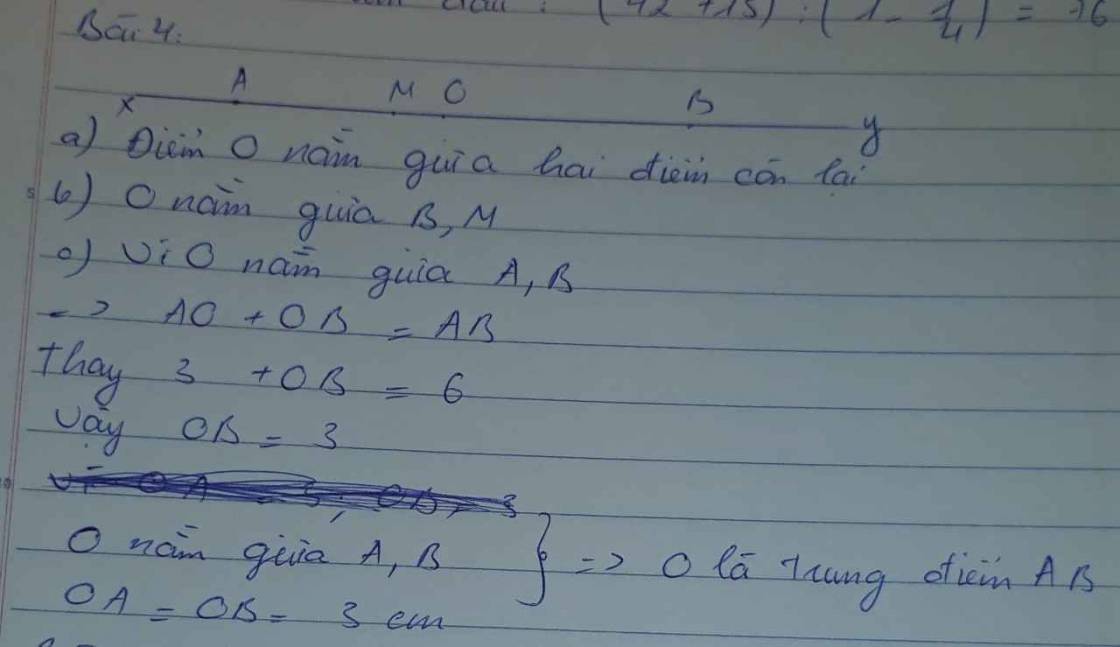 (42 + 15) : (1 - 1/4) = 76
Bài 4:
x A M O B y
a) Điểm O nằm giữa hai điểm còn lại
b) O nằm giữa B, M
c) Vì O nằm giữa A, B
=> AO + OB = AB
Thay 3 + OB = 6
Vậy OB = 3
O nằm giữa A, B
OA = OB = 3 cm } => O là trung điểm AB